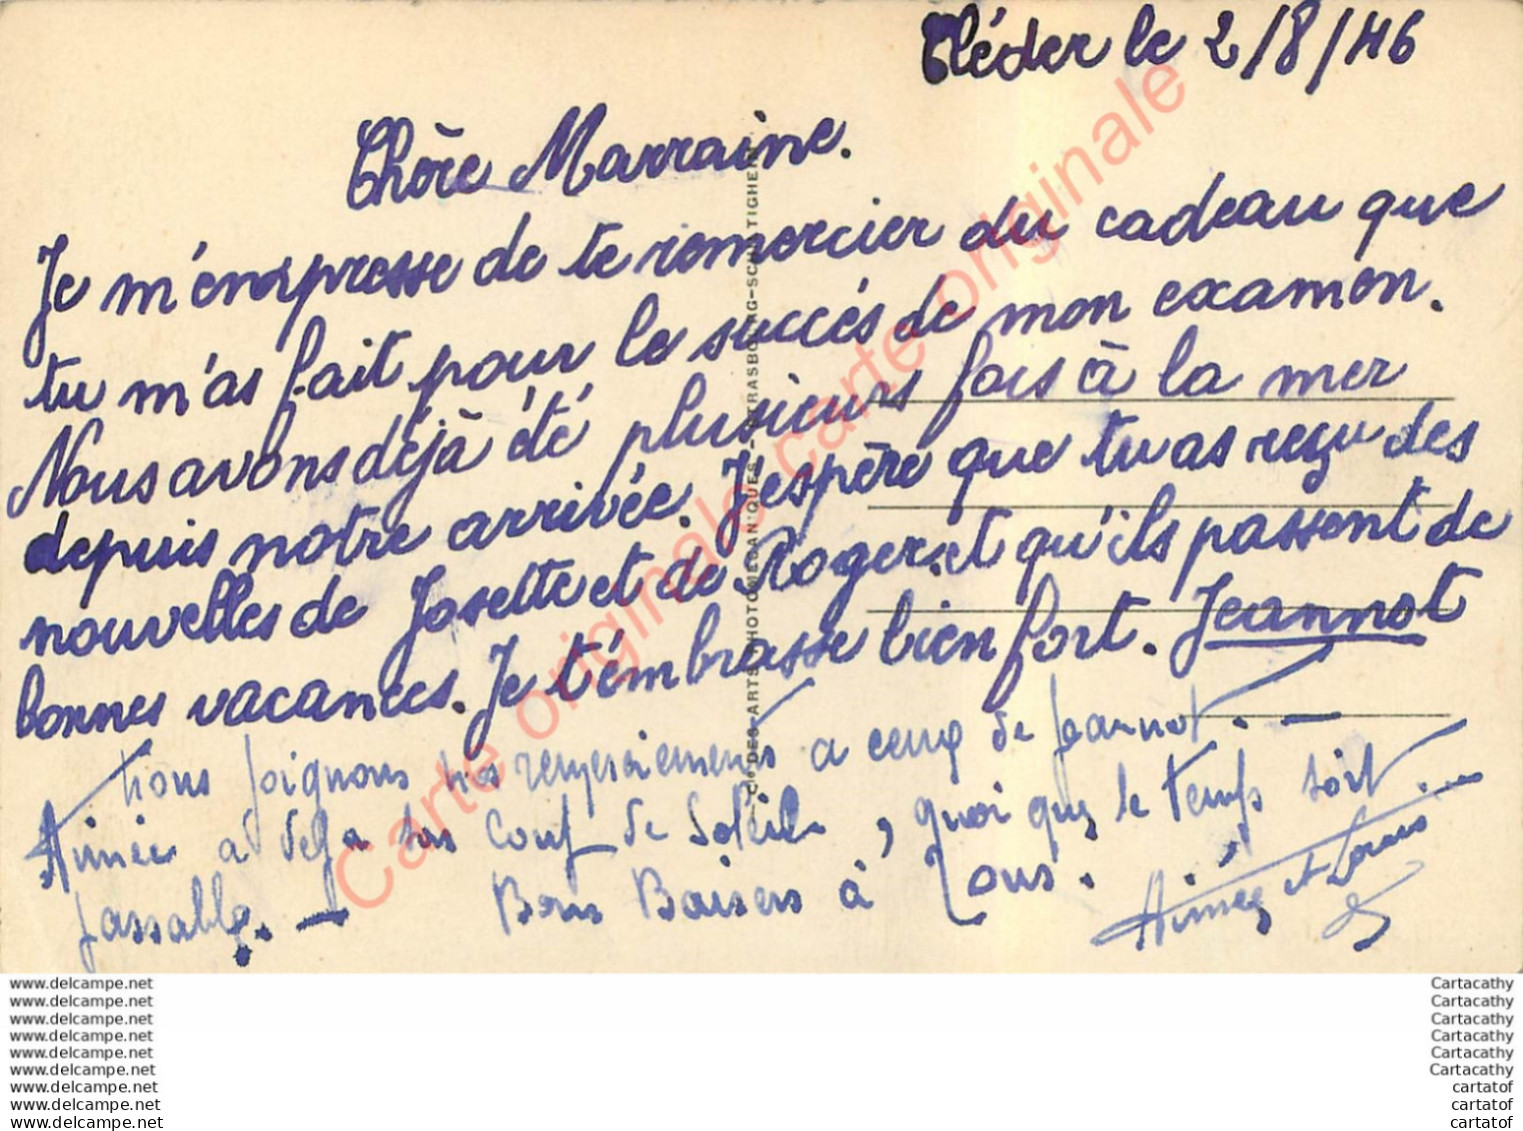 Cléder le 2/8/46
Chère Marraine.
Je m'empresse de te remercier du cadeau que
tu m'as fait pour le succés de mon examen.
Nous avons déjà été plusieurs fois à la mer
depuis notre arrivée. J'espère que tu as reçu des
nouvelles de Josette et de Roger et qu'ils passent de
bonnes vacances. Je t'émbrasse bien fort. Jeannot
Nous joignons nos remerciements a ceux de Jeannot. —
Aimée a deja son Coup de Soleil, quoi que le temps soit
passable. — Bons Baisers à Tous.
Aimée et Louis
Cie DES ARTS PHOTOMECANIQUES - STRASBOURG-SCHILTIGHEIM
Carte originale Carte originale Carte originale
www.delcampe.net Cartacathy
www.delcampe.net Cartacathy
www.delcampe.net Cartacathy
www.delcampe.net Cartacathy
www.delcampe.net Cartacathy
www.delcampe.net Cartacathy
www.delcampe.net cartatof
www.delcampe.net cartatof
www.delcampe.net cartatof